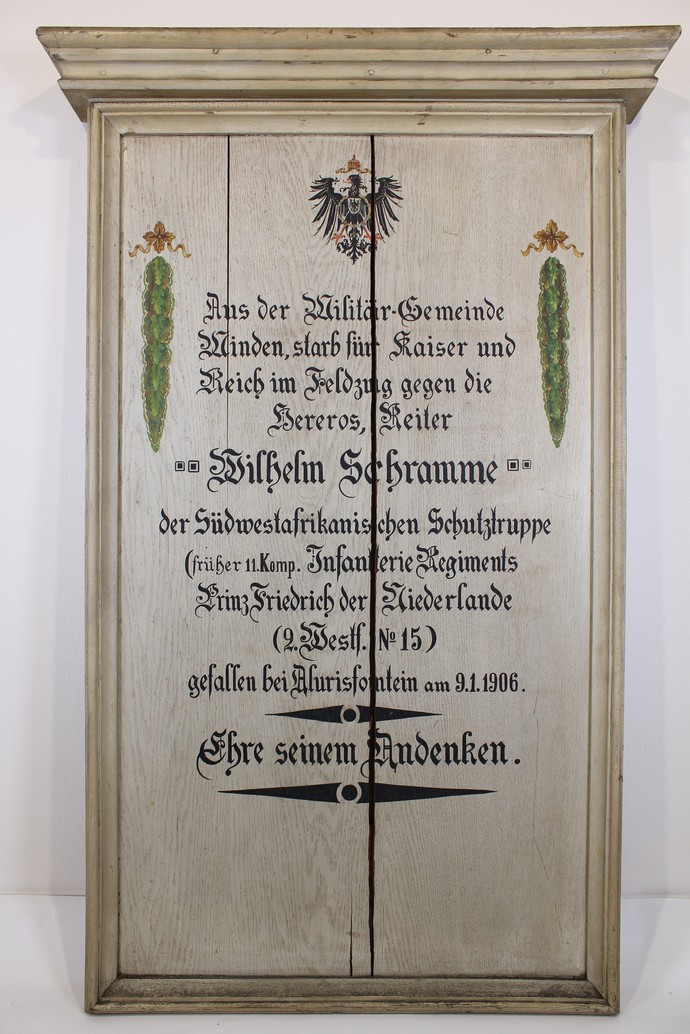 Aus der Militär-Gemeinde
Minden, starb für Kaiser und
Reich im Feldzug gegen die
Hereros, Reiter
Wilhelm Schramme
der Südwestafrikanischen Schutztruppe
(früher 11. Komp. Infanterie Regiments
Prinz Friedrich der Niederlande
(2. Westf. No 15)
gefallen bei Alurisfontein am 9.1.1906.
Ehre seinem Andenken.